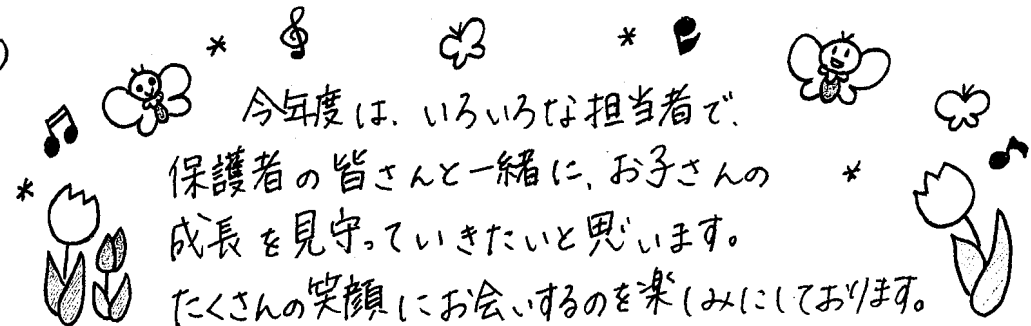 今年度は、いろいろな担当者で、
保護者の皆さんと一緒に、お子さんの
成長を見守っていきたいと思います。
たくさんの笑顔にお会いするのを楽しみにしております。